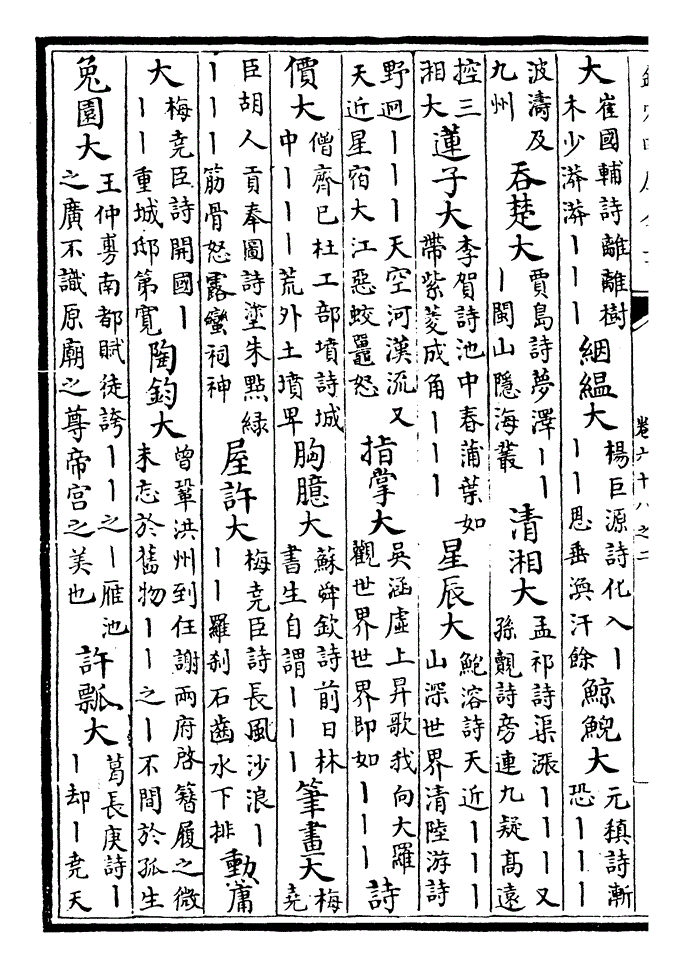 欽定四庫全書
卷六十八之二
大 崔國輔詩離離樹木少漭漭｜｜｜ 絪縕大 楊巨源詩化入｜｜｜恩垂渙汗餘 鯨鯢大 元稹詩漸恐｜｜｜
波濤及九州 吞楚大 賈島詩夢澤｜｜｜閩山隱海叢 清湘大 孟祁詩渠漲｜｜｜又孫覿詩旁連九疑高遠
控三湘大 蓮子大 李賀詩池中春蒲葉如帶紫菱成角｜｜｜ 星辰大 鮑溶詩天近｜｜｜山深世界清陸游詩
野迥｜｜｜天空河漢流又天近星宿大江惡蛟鼉怒 指掌大 吳涵虛上昇歌我向大羅觀世界世界即如｜｜｜ 詩
價大 僧齊己杜工部墳詩城中｜｜｜荒外土墳卑 胸臆大 蘇舜欽詩前日林書生自謂｜｜｜ 筆畫大 梅堯
臣胡人貢奉圖詩塗朱點綠｜｜｜筋骨怒露蠻祠神 屋許大 梅堯臣詩長風沙浪｜｜｜羅刹石齒水下排 動庸
大 梅堯臣詩開國｜｜｜重城邸第寬 陶鈞大 曾鞏洪州到任謝兩府啓簪履之微未忘於舊物｜｜之｜不間於孤生
兔園大 王仲旉南都賦徒誇｜｜之｜雁池之廣不識原廟之尊帝宫之美也 許瓢大 葛長庚詩｜｜却｜堯天